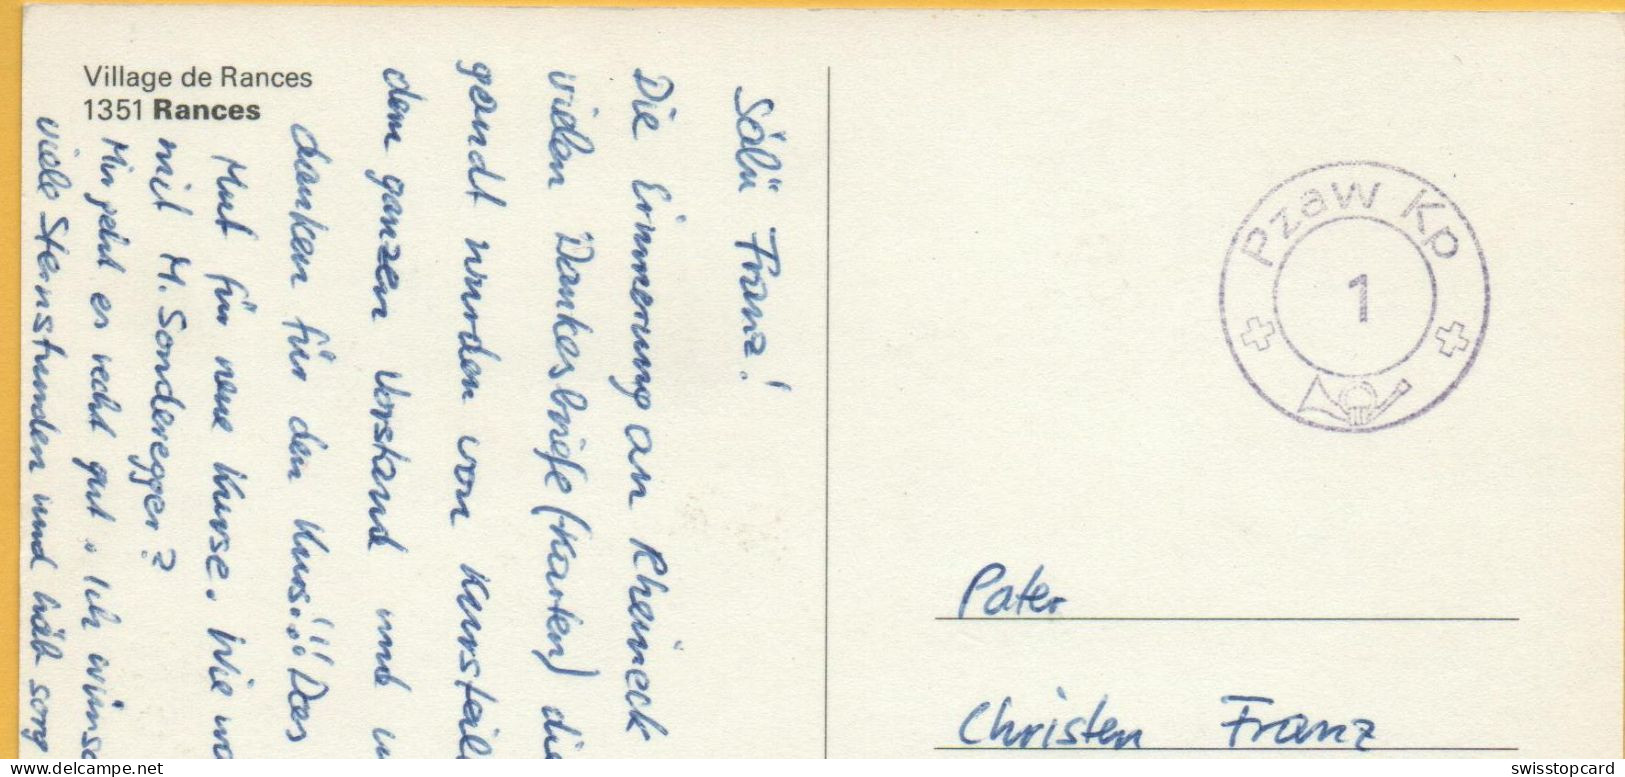 Village de Rances
1351 Rances
Sälü Franz!
Die Erinnerung an Rheineck
vielen Dankesbriefe (karten) die
sandt wurden von Kursteil
dem ganzen Vorstand und
danken für den Kurs!!! Das
Mut für neue Kurse. Wie
mit M. Sonderegger?
Mir geht es recht gut. Ich wünsc
viele Sternstunden und häb sorg
Pzaw Kp
1
Pater
Christen Franz
swisstopcard